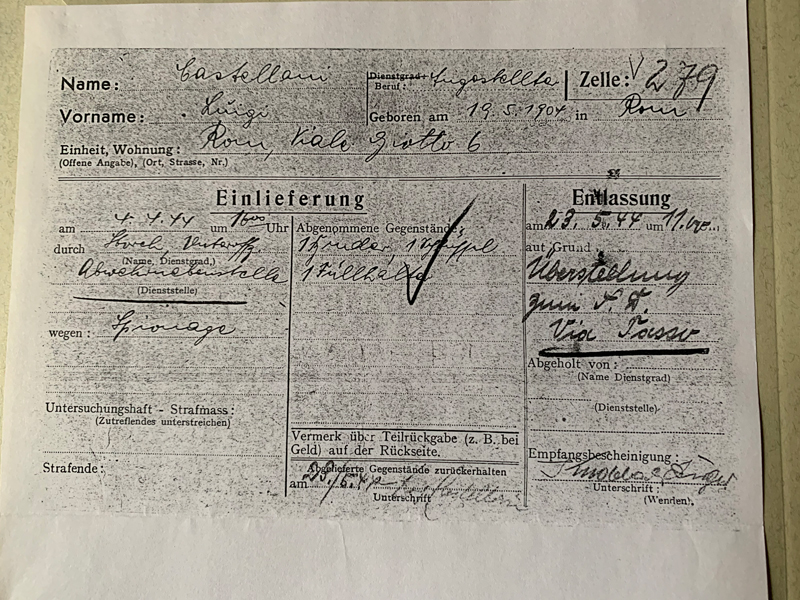 Name: Castellani
Dienstgrad + Beruf: Angestellter
Zelle: 279
Vorname: Luigi
Geboren am 19.5.1904 in Rom
Einheit, Wohnung: Rom, Viale Giotto 6
(Offene Angabe), (Ort, Strasse, Nr.)
Einlieferung
am 4.4.44 um Uhr
durch Unteroff.
(Name, Dienstgrad,)
Abwehrnebenstelle
(Dienststelle)
wegen: Spionage
Untersuchungshaft - Strafmass:
(Zutreffendes unterstreichen)
Strafende:
Abgenommene Gegenstände:
1
1 Füllhalter
Vermerk über Teilrückgabe (z. B. bei
Geld) auf der Rückseite.
Abgelieferte Gegenstände zurückerhalten
am
Unterschrift
Entlassung
am 23.5.44 um 11.00
auf Grund
Überstellung
zum S.D.
Via Tasso
Abgeholt von:
(Name Dienstgrad)
(Dienststelle)
Empfangsbescheinigung:
Unterschrift:
(Wenden)